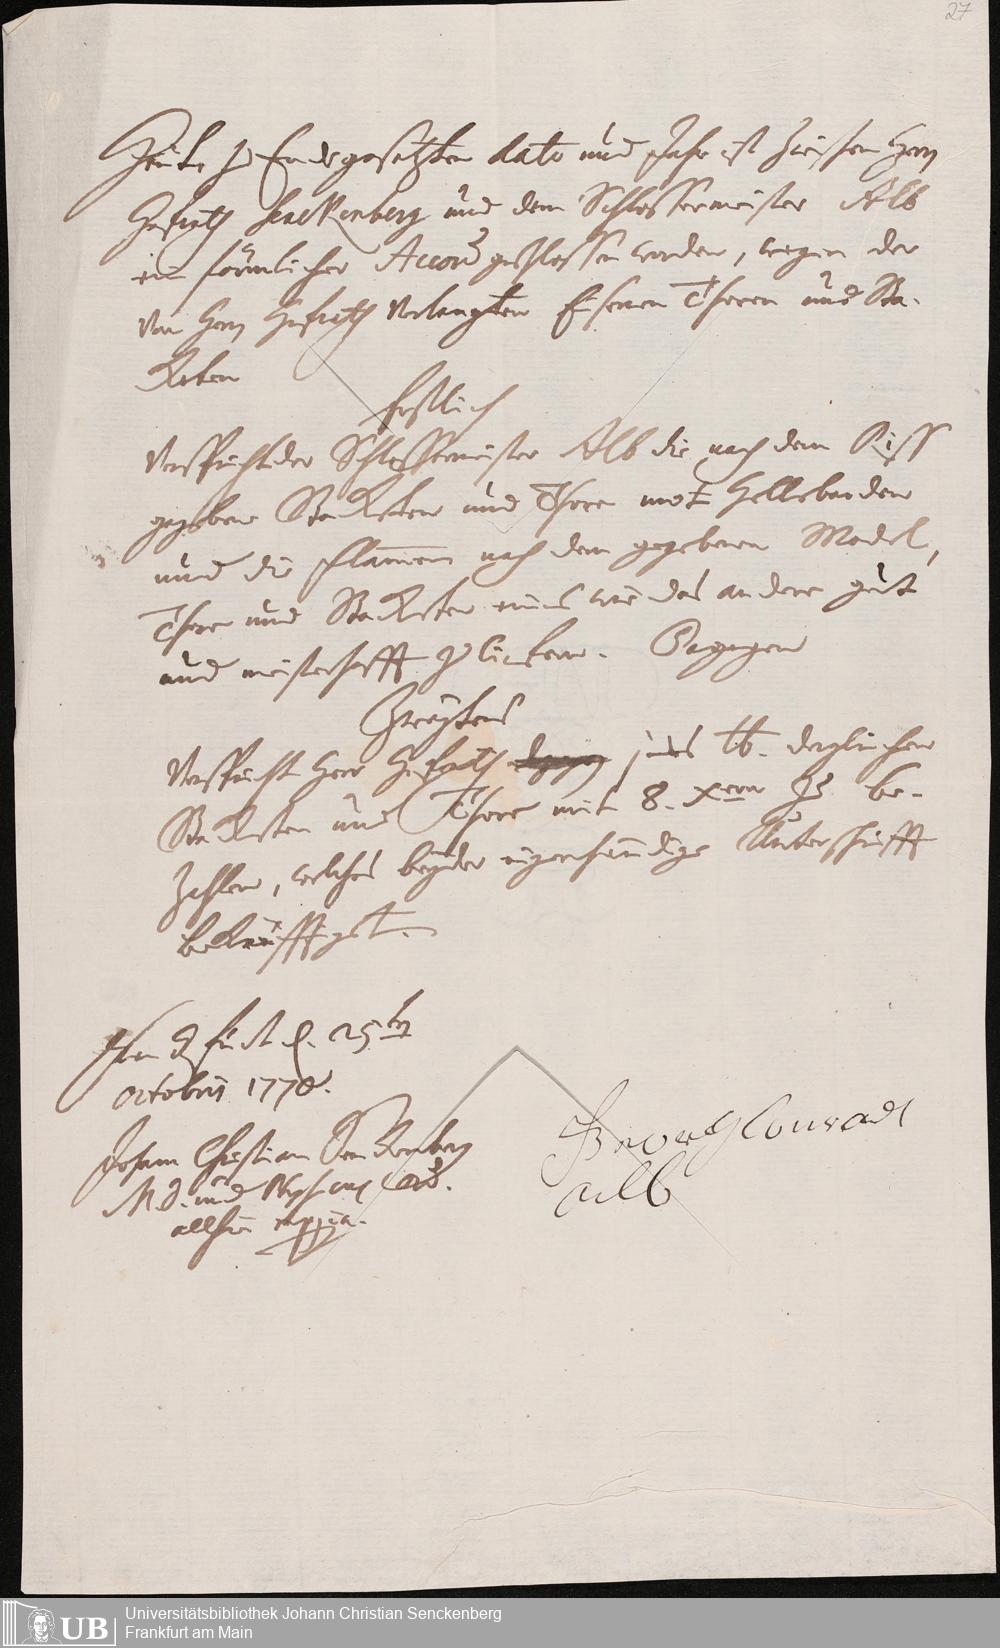 27
Heute zu Endesgesetzten dato und Jahr ist zwischen Herrn
Hofrath Senckenberg und dem Schlossermeister Alb
ein förmlicher Accord geschlossen worden, wegen der
von Herrn Hofrath verlangten Eisernen Thoren und Sta-
keten
Erstlich
Verspricht der Schlossermeister Alb die nach dem Riss
gegebene Stakketen und Thore mit Hellebarden
und die Flammen nach dem gegebenen Model,
Thore und Stakketen eins wie das andere gut
und meisterhafft zu liefern. Dagegen
Zweytens
Verspricht Herr Hofrath jedes lb. dergleichen
Stakketen und Thore mit 8. Xern zu be-
zahlen, welches beyder eigenhändige Unterschrifft
bekräfftiget.
Franckfurt d. 25ten
octobris 1770.
Johann Christian Senckenberg
M.D. und Physicus Ord.
allhier mppria.
Georg Conradt
alb
UB
Universitätsbibliothek Johann Christian Senckenberg
Frankfurt am Main